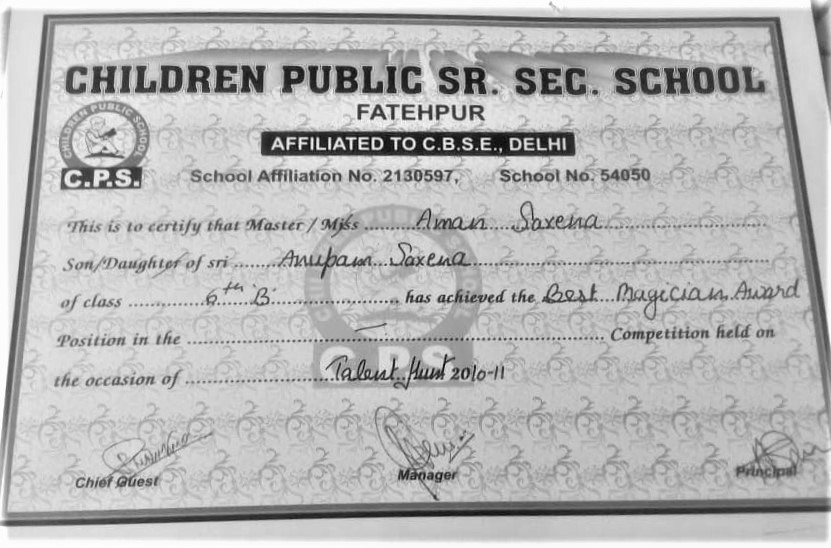 CHILDREN PUBLIC SR. SEC. SCHOOL
FATEHPUR
AFFILIATED TO C.B.S.E., DELHI
CHILDREN PUBLIC SCHOOL
C.P.S.
School Affiliation No. 2130597, School No. 54050
This is to certify that Master / Miss Aman Saxena
Son/Daughter of sri Anupam Saxena
of class 6th B has achieved the Best Magician Award
Position in the — Competition held on
C.P.S
the occasion of Talent Hunt 2010-11
Chief Guest Manager Principal